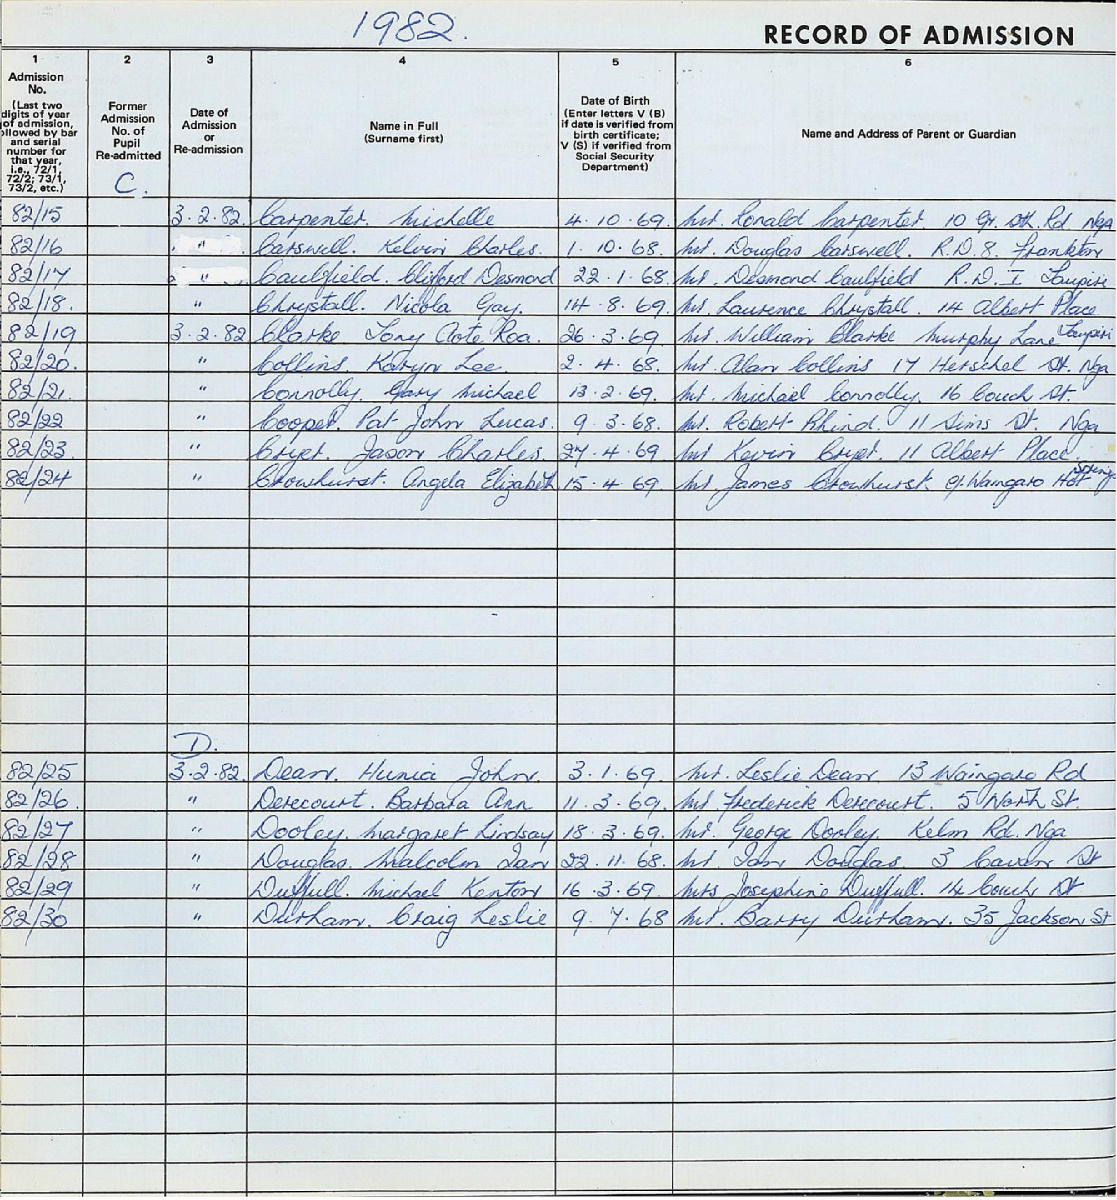 1982.
RECORD OF ADMISSION
1 2 3 4 5 6
Admission No. (Last two digits of year of admission, ollowed by bar and serial number for that year, i.e., 72/1, 72/2; 73/1, 73/2, etc.)
Former Admission No. of Pupil Re-admitted
C.
Date of Admission or Re-admission
Name in Full (Surname first)
Date of Birth (Enter letters V (B) if date is verified from birth certificate; V (S) if verified from Social Security Department)
Name and Address of Parent or Guardian
82/15 3.2.82. Carpenter. Michelle 4.10.69. Mr. Ronald Carpenter. 10 Gt. Sth. Rd Nga
82/16 " Carswell. Kelvin Charles. 1.10.68. Mr. Douglas Carswell. R.D 8. Frankton
82/17 " Caulfield. Clifford Desmond 22.1.68. Mr. Desmond Caulfield R.D. I Taupiri
82/18. " Chrystall. Nicola Gay. 14.8.69. Mr. Laurence Chrystall. 14 Albert Place
82/19 3.2.82 Clarke Tony Aote Roa. 26.3.69. Mr. William Clarke Murphy Lane Taupiri
82/20. " Collins. Karyn Lee. 2.4.68. Mr. Alan Collins 17 Herschel St. Nga
82/21. " Connolly. Gary Michael 13.2.69. Mr. Michael Connolly. 16 Couch St.
82/22 " Cooper. Pat John Lucas. 9.3.68. Mr. Robert Rhind. 11 Sims St. Nga
82/23. " Cryer. Jason Charles. 27.4.69 Mr Kevin Cryer. 11 Albert Place.
82/24 " Crowhurst. Angela Elizabeth 15.4.69. Mr. James Crowhurst. c/- Waingaro Hot Springs
D.
82/25 3.2.82. Dean. Hunia John. 3.1.69. Mr. Leslie Dean 13 Waingaro Rd
82/26 " Derecourt. Barbara Ann 11.3.69. Mr. Frederick Derecourt. 5 North St.
82/27 " Dooley. Margaret Lindsay 18.3.69. Mr. George Dooley. Kelm Rd. Nga
82/28 " Douglas. Malcolm Ian 22.11.68. Mr. Ian Douglas. 3 Caven St
82/29 " Duffull. Michael Kenton 16.3.69. Mrs Josephine Duffull. 14 Couch St
82/30 " Durham. Craig Leslie 9.7.68 Mr. Barry Durham. 35 Jackson St